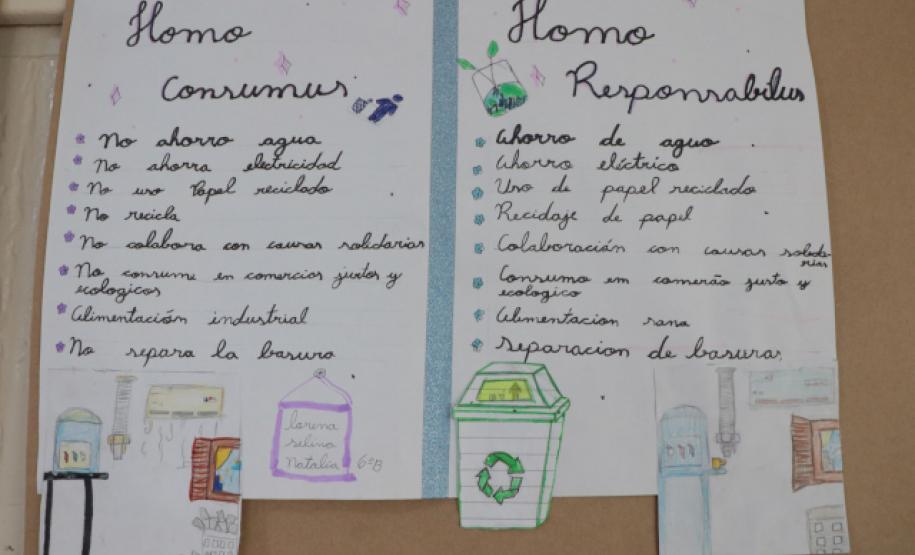 Homo
Consumus
No ahorro agua
No ahorra electricidad
No uso Papel reciclado
No recicla
No colabora con causas solidarias
No consume en comercios justos y
ecologicos
Alimentación industrial
No separa la basura
lorena
selina
Natalia 6ºB
Homo
Responsabilus
Ahorro de agua
Ahorro eléctrico
Uso de papel reciclado
Reciclaje de papel
Colaboración con causas solida-
rias
Consumo em comerão justo y
ecologico
Alimentacion sana
separacion de basuras